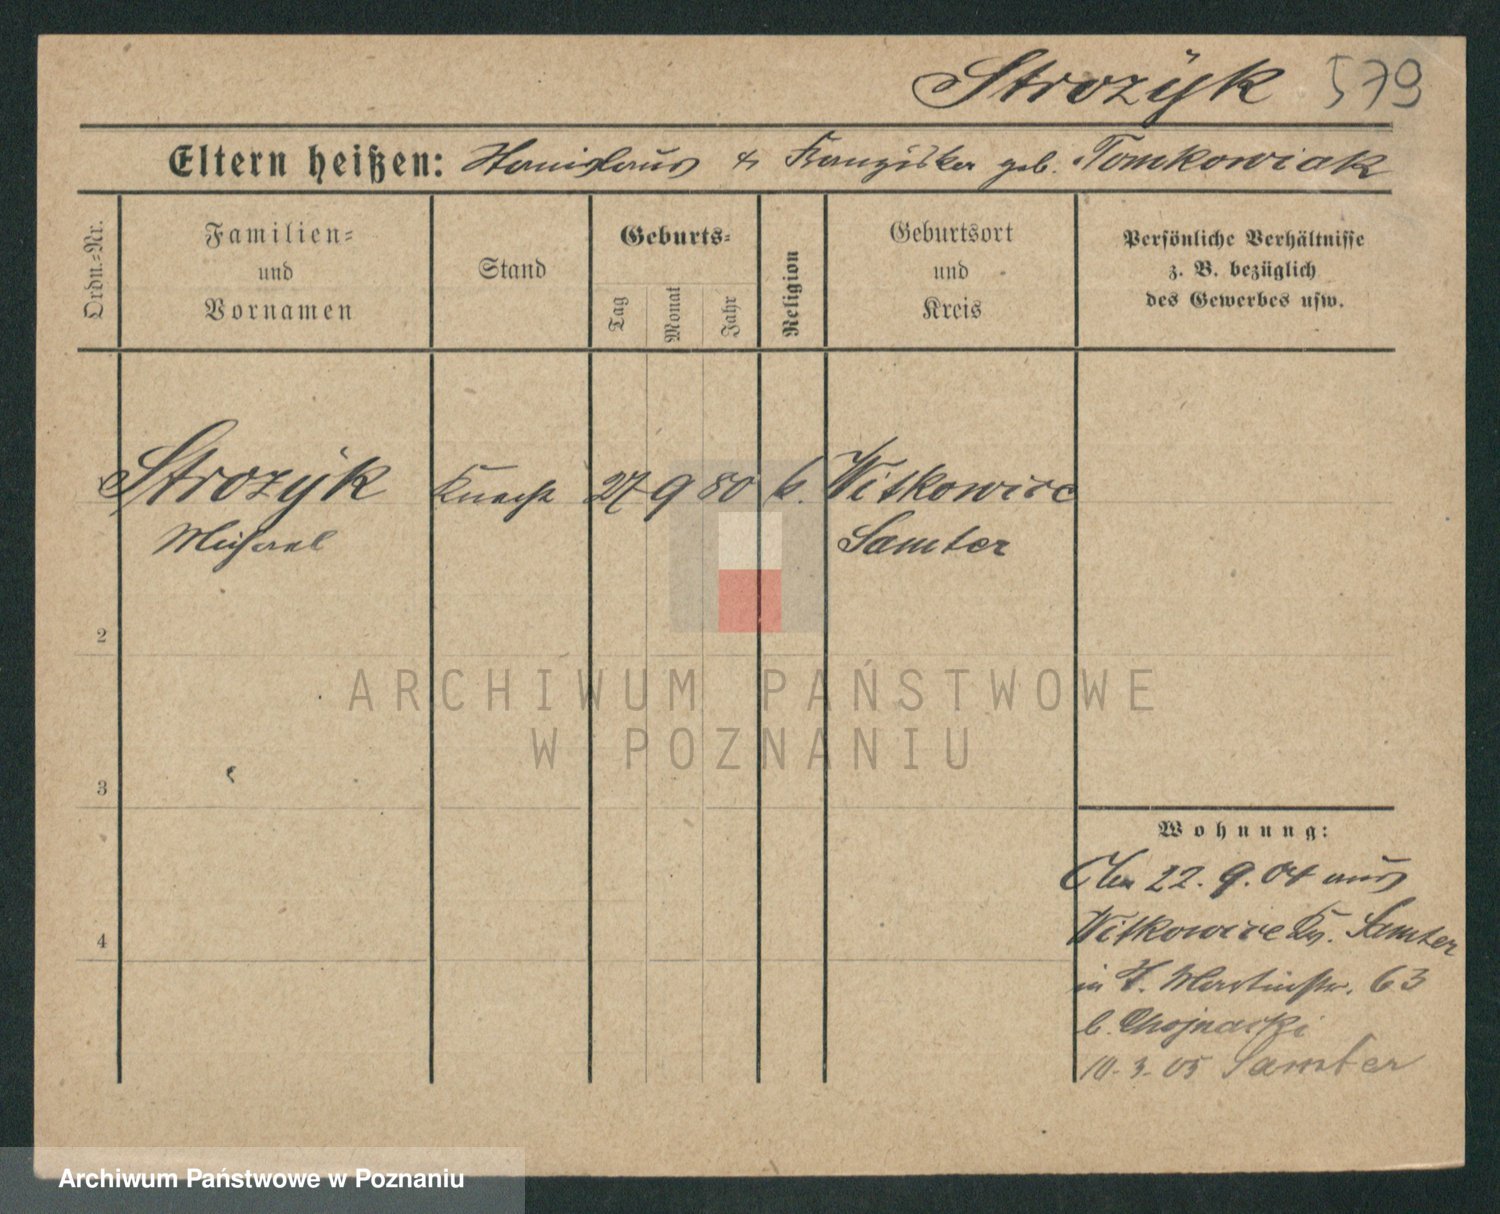 Strozÿk 579
Eltern heißen: Stanislaus & Franziska geb. Tomkowiak
Ordn.-Nr.
Familien- und Vornamen
Stand
Geburts-
Tag
Monat
Jahr
Religion
Geburtsort und Kreis
Persönliche Verhältnisse
z. B. bezüglich
des Gewerbes usw.
Strozÿk Knecht 27 9 80 k. Witkowice
Michael Samter
2
3
4
ARCHIWUM PAŃSTWOWE
W POZNANIU
Wohnung:
22. 9. 04 aus
Witkowice Kr. Samter
in St. Martinstr. 63
b. Chojnacki
10. 3. 05 Samter
Archiwum Państwowe w Poznaniu